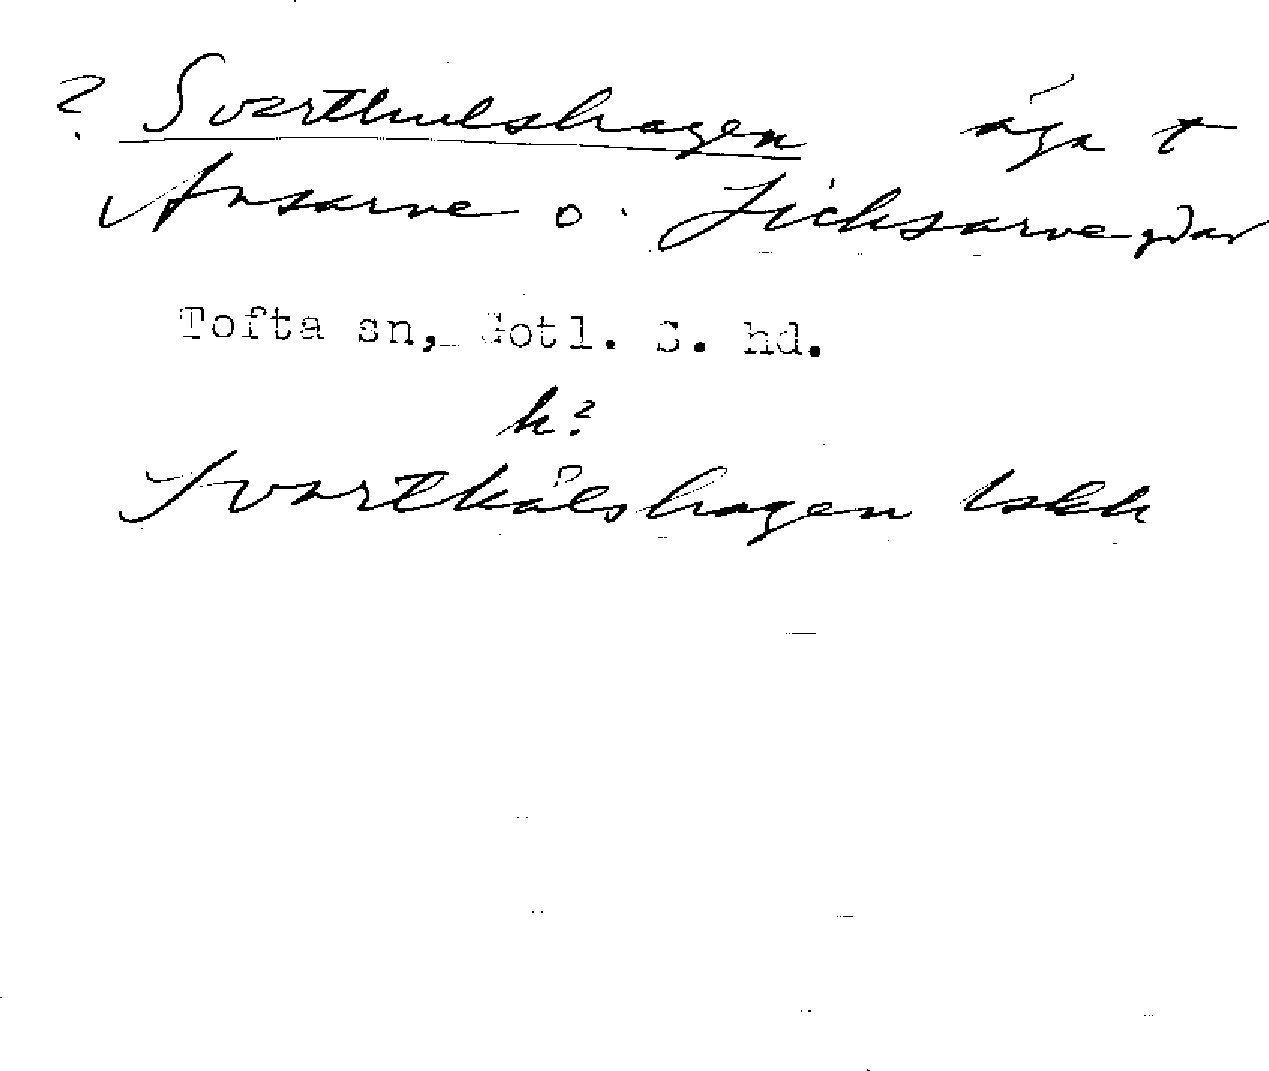 ? Svarthulshagen äga t
Ansarve o. Jicksarve gdar
Tofta sn, Gotl. S. hd.
k?
Svartkålshagen